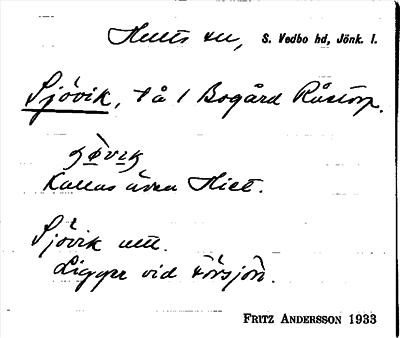 Hults sn, S. Vedbo hd, Jönk. l.
Sjövik, tå 1 Bogård Råstorp.
Kallas även Hiet.
Sjövik utt.
Ligger vid Försjön.
FRITZ ANDERSSON 1933